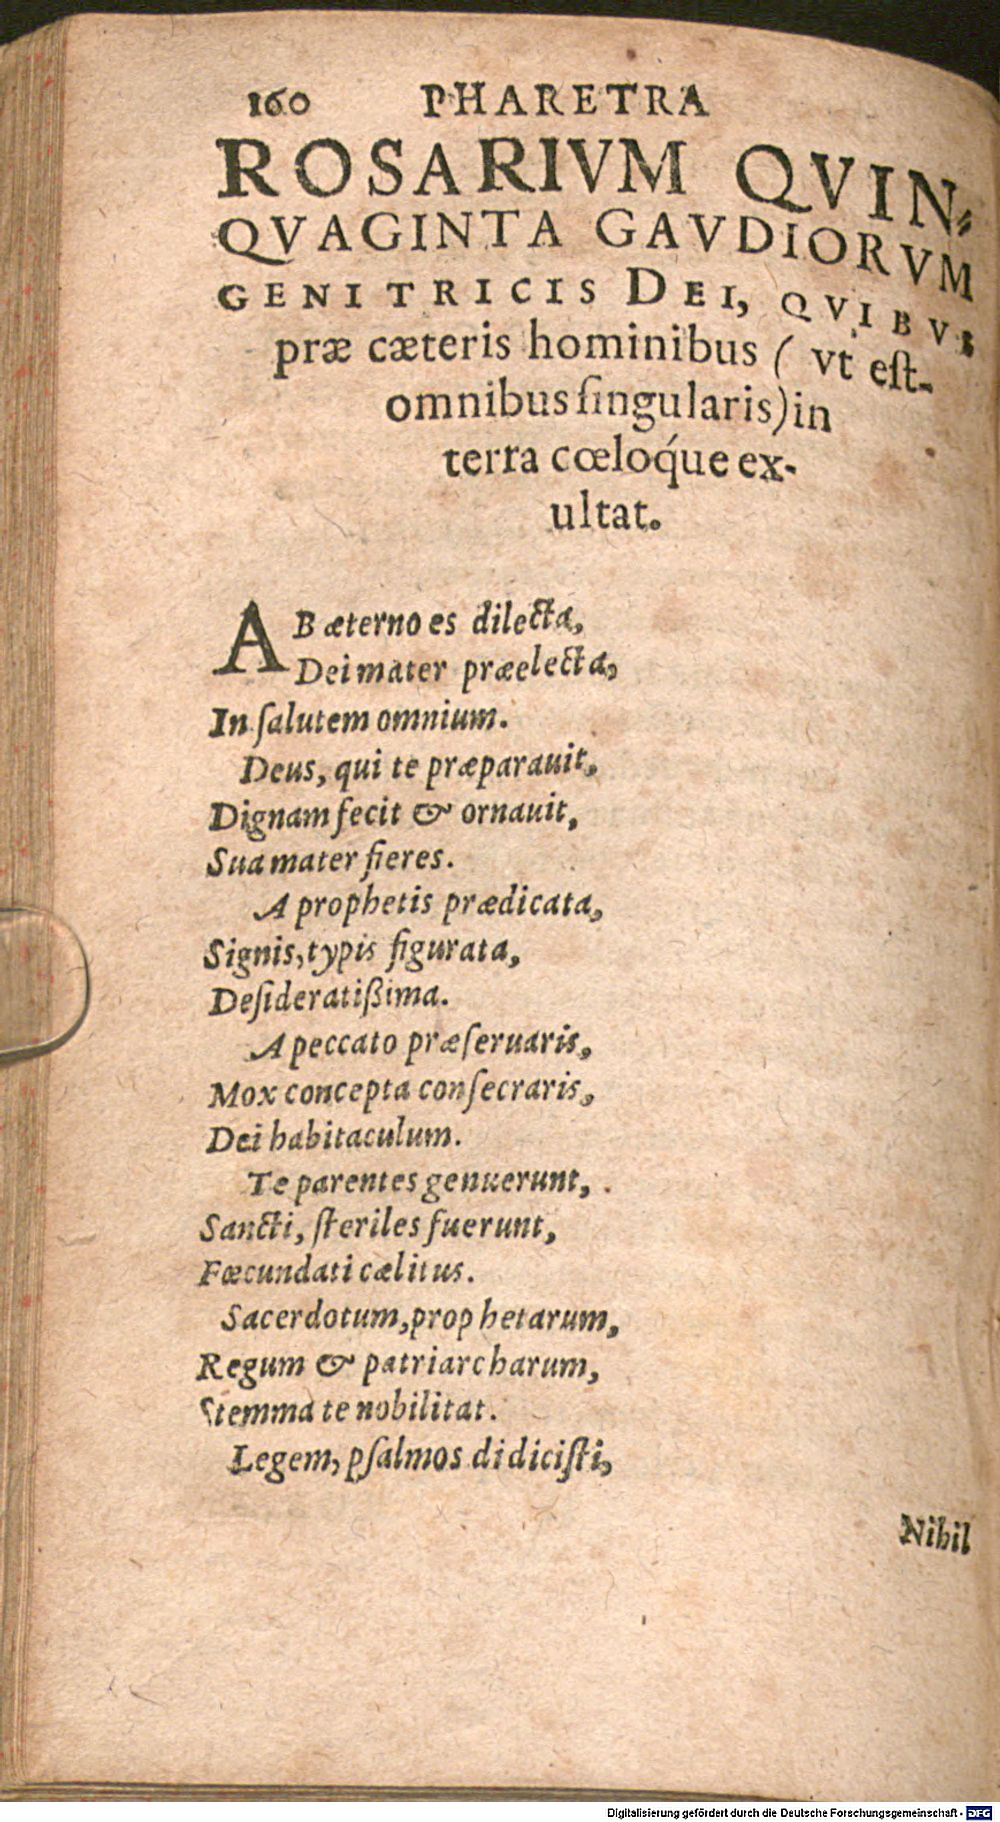 160 PHARETRA
ROSARIVM QVIN-
QVAGINTA GAVDIORVM
GENITRICIS DEI, QVIBVS
præ cæteris hominibus ( vt est
omnibus singularis) in
terra cœloq́ue ex-
ultat.
AB æterno es dilecta,
Dei mater præelecta,
In salutem omnium.
Deus, qui te præparauit,
Dignam fecit & ornauit,
Sua mater fieres.
A prophetis prædicata,
Signis, typis figurata,
Desideratißima.
A peccato præseruaris,
Mox concepta consecraris,
Dei habitaculum.
Te parentes genuerunt,
Sancti, steriles fuerunt,
Fœcundati cælitus.
Sacerdotum, prophetarum,
Regum & patriarcharum,
Stemma te nobilitat.
Legem, psalmos didicisti,
Nihil
Digitalisierung gefördert durch die Deutsche Forschungsgemeinschaft - DFG